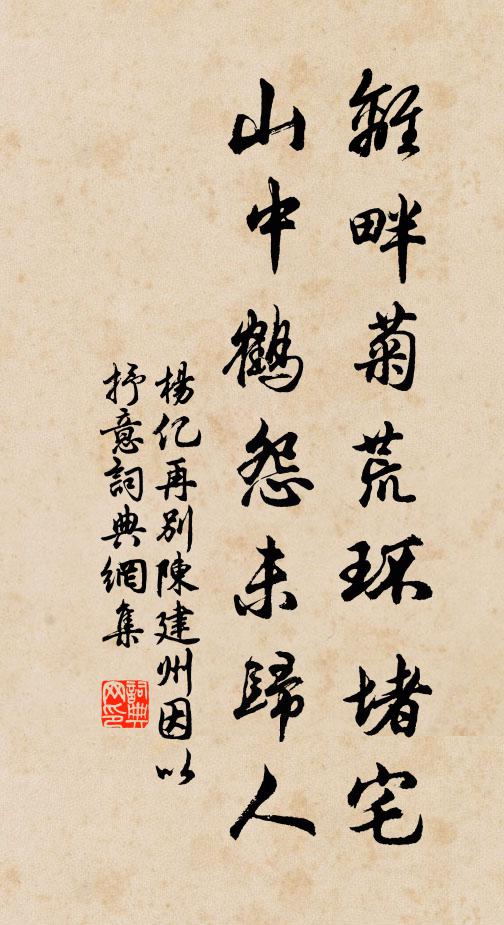 離畔菊荒环堵宅
山中鶴怨未歸人
楊亿再別陳建州因以
抒意詞典網集
詞典
网印